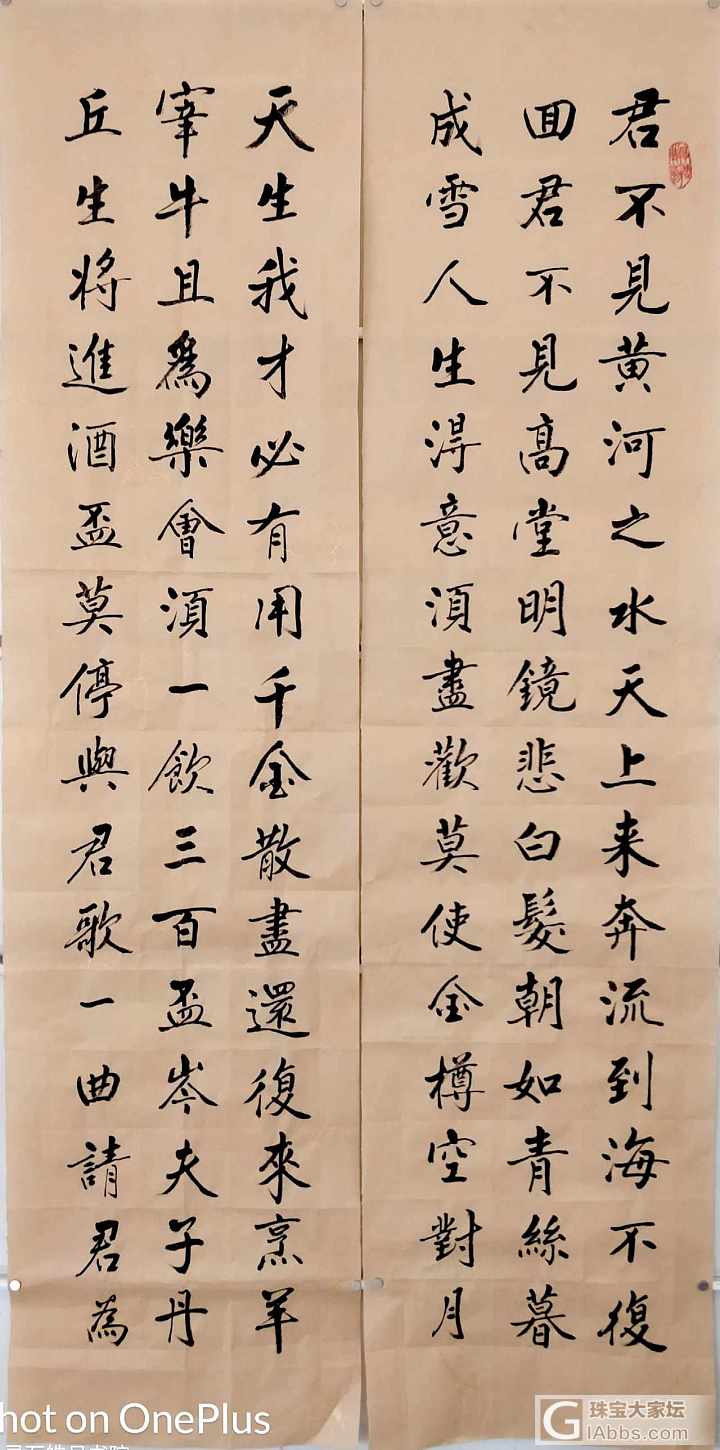 君不見黄河之水天上来奔流到海不復
回君不見高堂明鏡悲白髮朝如青絲暮
成雪人生得意須盡歡莫使金樽空對月
天生我才必有用千金散盡還復來烹羊
宰牛且為樂會須一飲三百盃岑夫子丹
丘生將進酒盃莫停與君歌一曲請君為
hot on OnePlus
珠宝大家坛
IAbbs.com